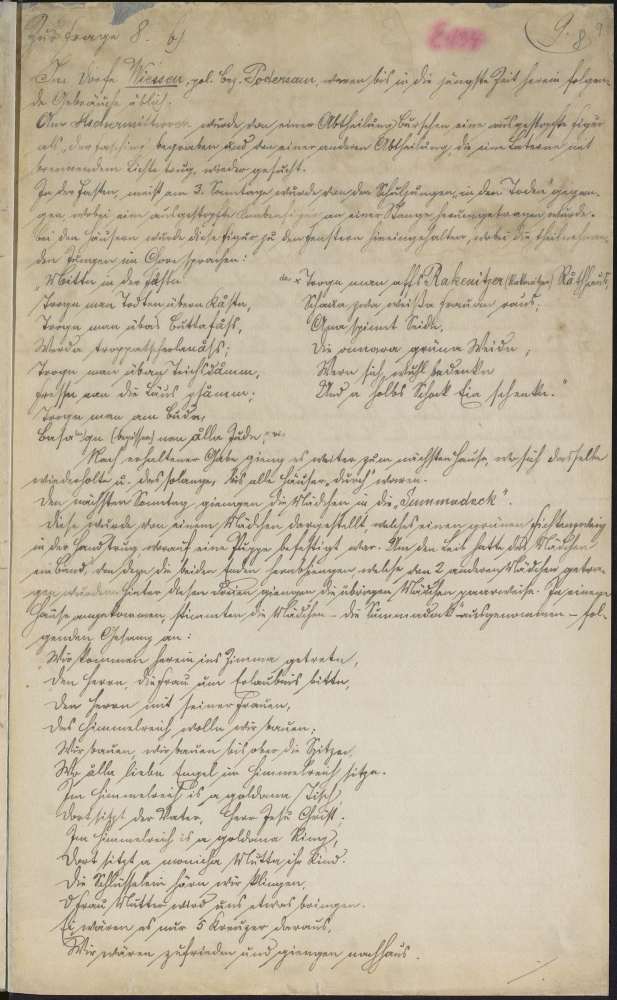 Zur Frage 8. b)
E 194
9. 8
Im Dorfe Wiessen, pol. Bez. Podersam, waren bis in die jüngste Zeit herein folgen-
de Gebräuche üblich.
Am Aschermittwoch wurde von einer Abtheilung Burschen eine ausgestopfte Figur
als "der Fasching" begraben und von einer anderen Abtheilung, die eine Laterne mit
brennendem Lichte trug, wieder gesucht.
In der Fasten, meist am 3. Sonntage wurde von den Schuljungen "in den Toden" gegan-
gen, wobei eine ausgestopfte an einer Stange herumgetragen wurde.
Bei den Häusern wurde diese Figur zu den Fenstern hineingehalten, wobei die theilnehmen-
den Jungen im Chore sprachen:
"Mitten in der Fasten
Trogn man Todten übern Kasten,
Trogn man übas Buttafass,
Trogn man üban Teichsdamm,
fressen die Läus zsamm;
Trogn man am
(bepissen) man alla Jude,
Trogn man affs Rakenitzer (Rakonitzer) Rathhaus,
Schaua zwa weissa Fraun raus;
Ana spinnt Seide,
Die annara grüna Weide,
Wern sich wuhl bedenke
Und a holbs Schock Eia schenke."
Nach erhaltener Gabe gieng es weiter zum nächsten Hause, wo sich dasselbe
wiederholte u. das solange, bis alle Häuser "durch" waren.
Den nächsten Sonntag giengen die Mädchen in die "Summadock".
Diese wurde von einem Mädchen dargestellt, welches einen grünen Fichtenzweig
in der Hand trug worauf eine Puppe befestigt war. Um den Leib hatte das Mädchen
ein Band, von dem die beiden Enden herabhiengen welche von 2 anderen Mädchen getra-
gen wurden. Hinter diesen Dreien giengen die übrigen Mädchen paarweise. In einem
Hause angekommen, stimmten die Mädchen – die "Summadock" ausgenommen – fol-
genden Gesang an:
Wir kommen herein ins Zimma getretn,
Den Herrn, die Frau um Erlaubnis bittn,
Den Herrn mit seiner Frauen,
Das Himmelreich wolln wir bauen;
Wir bauen, wir bauen bis ober die Spitzen,
Wo alla lieben Engel im Himmelreich sitzn.
Im Himmelreich is a goldana Tisch,
Dort sitzt der Vater, Herr Jesu Christ.
Im Himmelreich is a goldana Ring,
Dort sitzt a Mutta ihr Kind.
Die Schlüsselein hörn wir klingen,
D'Frau Mutter wird uns etwas bringen.
Ei wären es nur 5 Kreuzer daraus,
Wir wären zufrieden und giengen nachhaus.